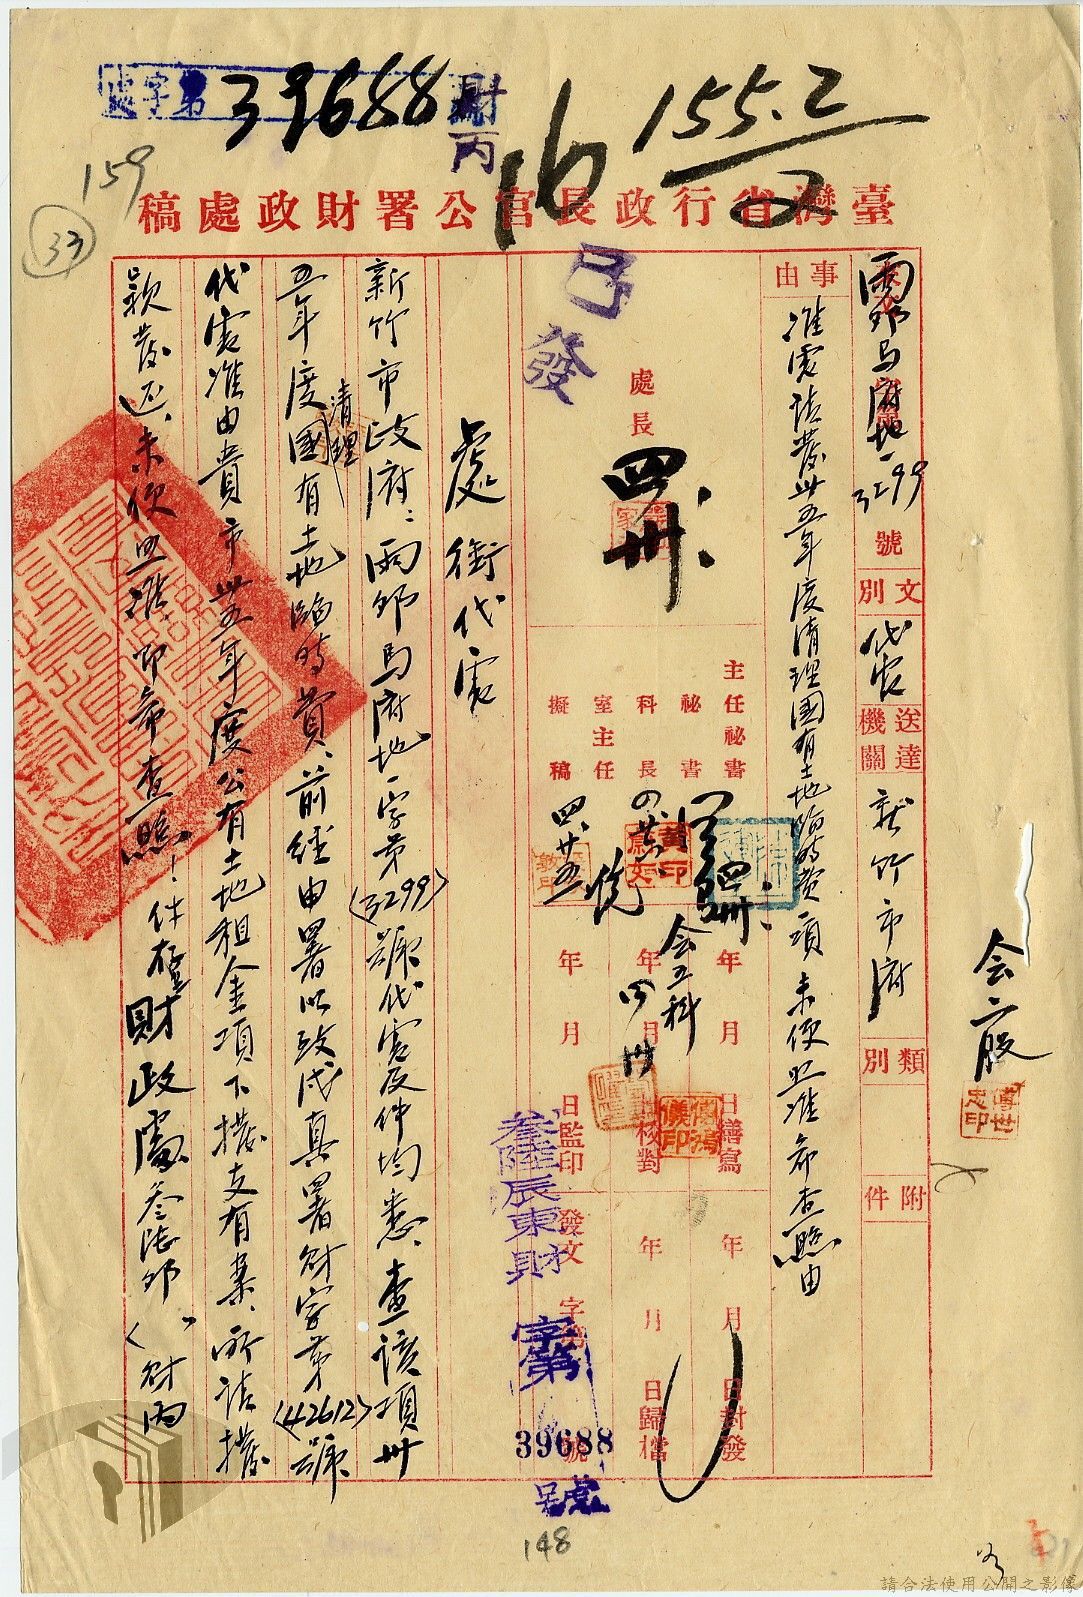 處字第39688號
財丙
16
155.2
2
159
33
臺灣省行政長官公署財政處稿
號
文別
代電
送達機關
新竹市府
類別
附件
3299
事由
准電請發卅五年度清理國有土地臨時費一項未便照准希查照由
已發
處長
四卅
主任祕書
祕書
科長
室主任
擬稿
会五科
会二股
年月日繕寫
年月日核對
年月日監印
年月日封發
年月日歸檔
發文字第號
參陸辰東財字第39688號
處銜代電
新竹市政府:雨卯馬府地一字第(3299)號代電及件均悉、查該項卅
五年度清理國有土地臨時費、前經由署以致戌真署財字第(42612)號
代電准由貴市卅五年度公有土地租金項下撥支有案、所請撥
款發還、未便照准、即希查照!件存財政處參陸卯(財丙
148
請合法使用公開之影像